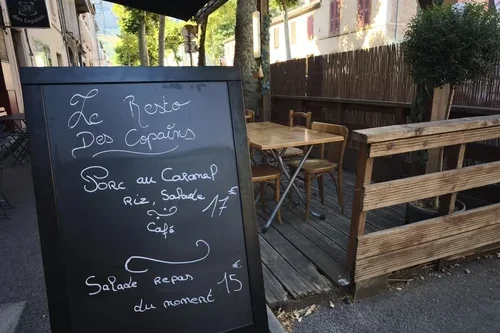 Le Resto
Des Copains
Porc au Caramel
Riz, Salade 17€
Café
Salade Repas 15€
du moment